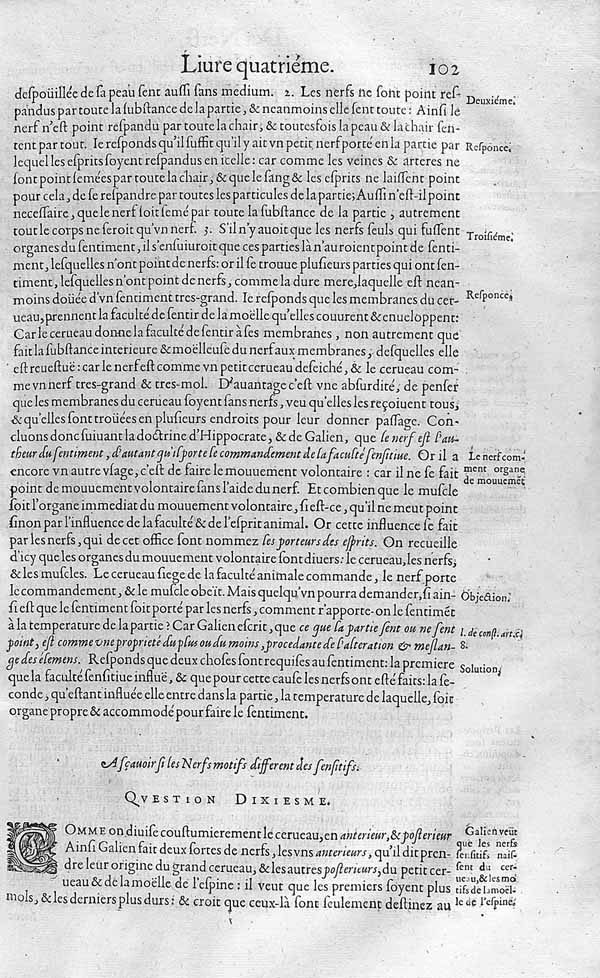 Liure quatriéme. 102
deſpoüillée de ſa peau ſent auſſi ſans medium. 2. Les nerfs ne ſont point reſ-
pandus par toute la ſubſtance de la partie, & neanmoins elle ſent toute: Ainſi le
nerf n'eſt point reſpandu par toute la chair, & toutesfois la peau & la chair ſen-
tent par tout. Ie reſponds qu'il ſuffit qu'il y ait vn petit nerf porté en la partie par
lequel les eſprits ſoyent reſpandus en icelle: car comme les veines & arteres ne
ſont point ſemées par toute la chair, & que le ſang & les eſprits ne laiſſent point
pour cela, de ſe reſpandre par toutes les particules de la partie; Auſſi n'eſt-il point
neceſſaire, que le nerf ſoit ſemé par toute la ſubſtance de la partie, autrement
tout le corps ne ſeroit qu'vn nerf. 3. S'il n'y auoit que les nerfs ſeuls qui fuſſent
organes du ſentiment, il s'enſuiuroit que ces parties là n'auroient point de ſenti-
ment, leſquelles n'ont point de nerfs: or il ſe trouue pluſieurs parties qui ont ſen-
timent, leſquelles n'ont point de nerfs, comme la dure mere, laquelle eſt nean-
moins doüée d'vn ſentiment tres-grand. Ie reſponds que les membranes du cer-
ueau, prennent la faculté de ſentir de la moëlle qu'elles couurent & enueloppent:
Car le cerueau donne la faculté de ſentir à ſes membranes, non autrement que
fait la ſubſtance interieure & moëlleuſe du nerf aux membranes, deſquelles elle
eſt reueſtuë: car le nerf eſt comme vn petit cerueau deſeiché, & le cerueau com-
me vn nerf tres-grand & tres-mol. D'auantage c'eſt vne abſurdité, de penſer
que les membranes du cerueau ſoyent ſans nerfs, veu qu'elles les reçoiuent tous,
& qu'elles ſont troüées en pluſieurs endroits pour leur donner paſſage. Con-
cluons donc ſuiuant la doctrine d'Hippocrate, & de Galien, que le nerf eſt l'au-
theur du ſentiment, d'autant qu'il porte le commandement de la faculté ſenſitiue. Or il a
encore vn autre vſage, c'eſt de faire le mouuement volontaire: car il ne ſe fait
point de mouuement volontaire ſans l'aide du nerf. Et combien que le muſcle
ſoit l'organe immediat du mouuement volontaire, ſi eſt-ce, qu'il ne meut point
ſinon par l'influence de la faculté & de l'eſprit animal. Or cette influence ſe fait
par les nerfs, qui de cet office ſont nommez les porteurs des eſprits. On recueille
d'icy que les organes du mouuement volontaire ſont diuers: le cerueau, les nerfs,
& les muſcles. Le cerueau ſiege de la faculté animale commande, le nerf porte
le commandement, & le muſcle obeït. Mais quelqu'vn pourra demander, ſi ain-
ſi eſt que le ſentiment ſoit porté par les nerfs, comment r'apporte-on le ſentimēt
à la temperature de la partie? Car Galien eſcrit, que ce que la partie ſent ou ne ſent
point, eſt comme vne proprieté du plus ou du moins, procedante de l'alteration & meſlan-
ge des elemens. Reſponds que deux choſes ſont requiſes au ſentiment: la premiere
que la faculté ſenſitiue influë, & que pour cette cauſe les nerfs ont eſté faits: la ſe-
conde, qu'eſtant influée elle entre dans la partie, la temperature de laquelle, ſoit
organe propre & accommodé pour faire le ſentiment.
Deuxiéme.
Reſponce.
Troiſiéme.
Reſponce.
Le nerf com-
ment organe
de mouuemēt
Objection.
l. de conſt. art. c.
8.
Solution.
Aſçauoir ſi les Nerfs motifs different des ſenſitifs.
QVESTION DIXIESME.
COMME on diuiſe couſtumierement le cerueau, en anterieur, & poſterieur
Ainſi Galien fait deux ſortes de nerfs, les vns anterieurs, qu'il dit pren-
dre leur origine du grand cerueau, & les autres poſterieurs, du petit cer-
ueau & de la moëlle de l'eſpine: il veut que les premiers ſoyent plus
mols, & les derniers plus durs: & croit que ceux-là ſont ſeulement deſtinez au
Galien veut
que les nerfs
ſenſitifs naiſ-
ſent du cer-
ueau, & les mo
tifs de la moël-
le de l'eſpine.